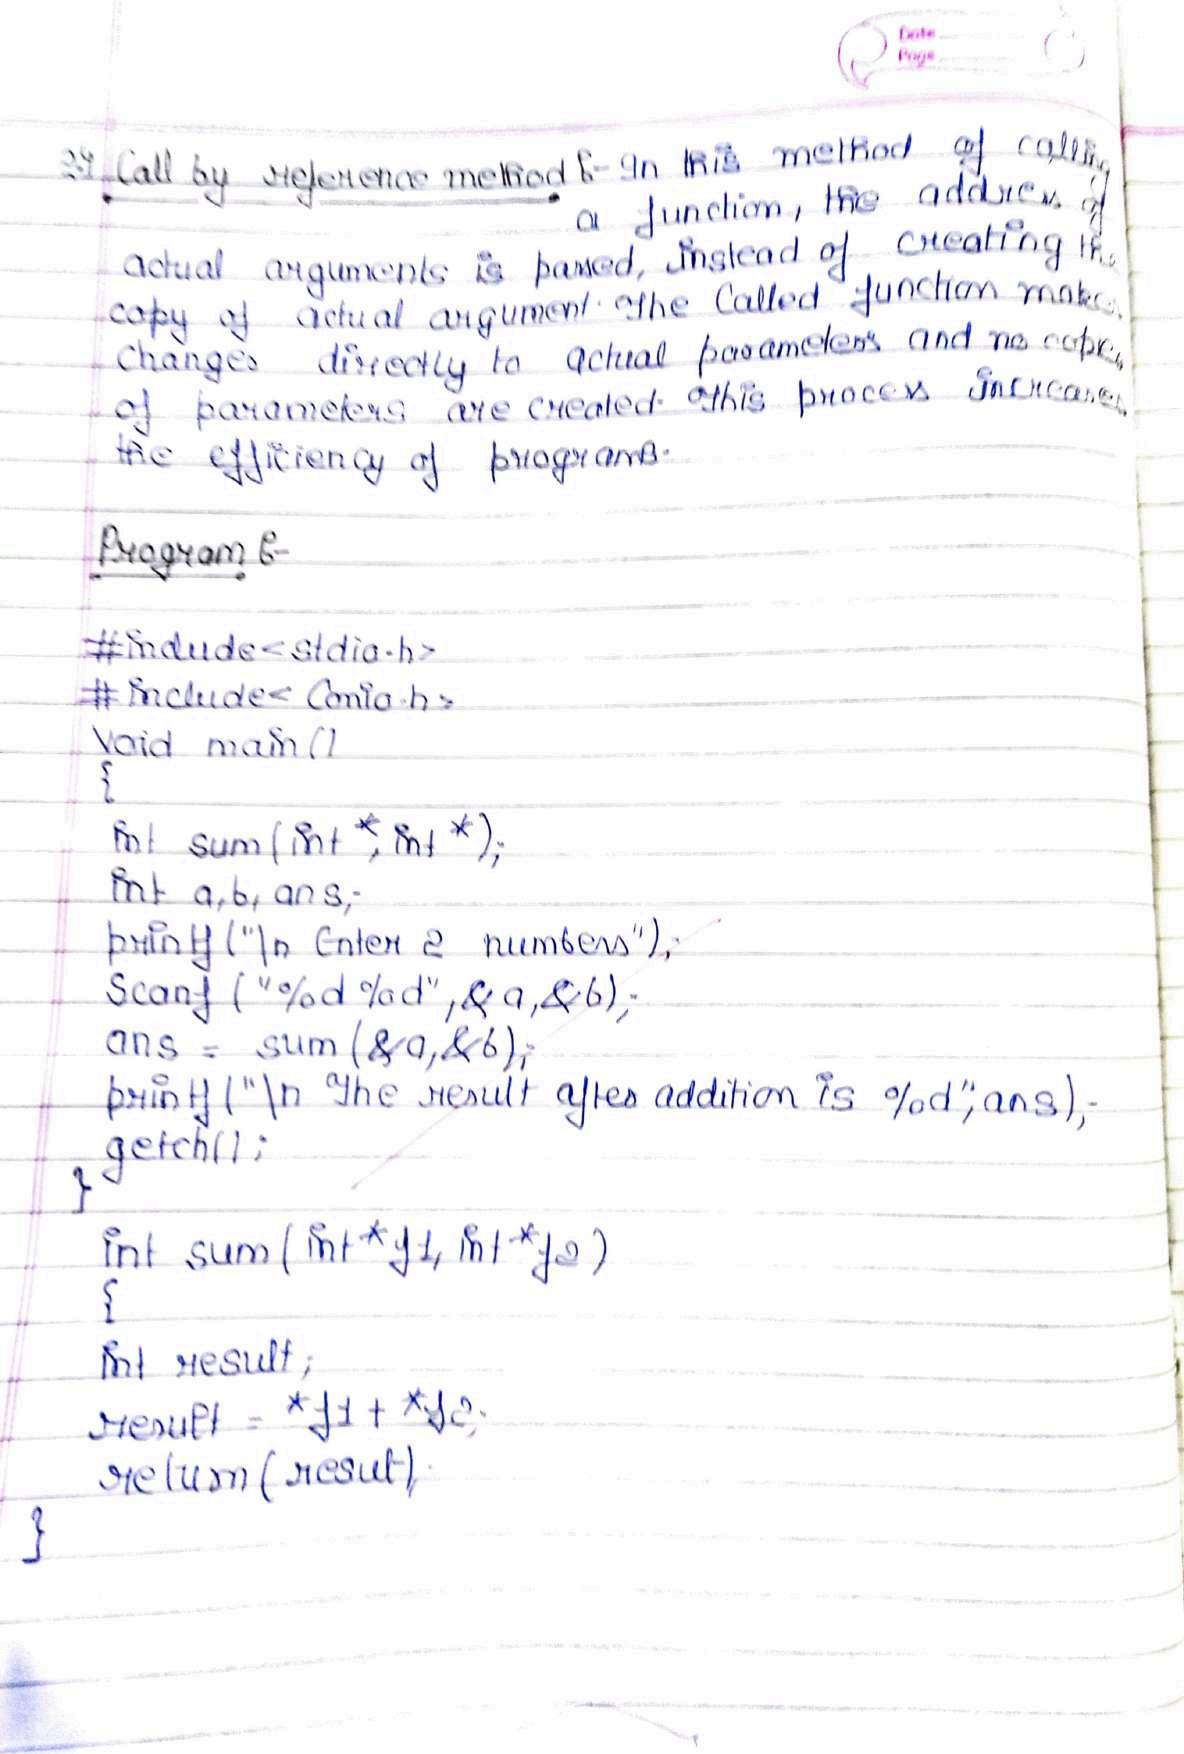 Date
Page
2.4 Call by reference method :- In this method of calling
a function, the address of
actual arguments is passed, instead of creating the
copy of actual argument. The Called function makes
changes directly to actual parameters and no copies
of parameters are created. This process increases
the efficiency of programs.
Program :-
#include<stdio.h>
#include< Conio.h>
Void main()
{
int sum(int *, int *);
int a,b, ans;
printf("\n Enter 2 numbers");
Scanf ("%d %d", &a, &b);
ans = sum (&a, &b);
printf("\n The result after addition is %d", ans);
getch();
}
int sum(int *y1, int *y2)
{
int result;
result = *y1 + *y2;
return(resut);
}